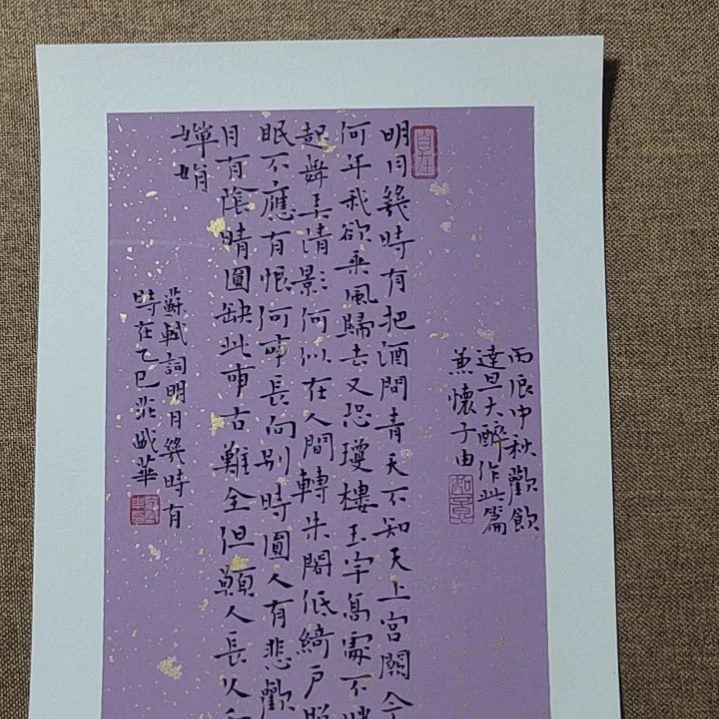 丙辰中秋歡飲
達旦大醉作此篇
兼懷子由
如意
自在
明月幾時有把酒問青天不知天上宮闕今
何年我欲乘風歸去又恐瓊樓玉宇高處不勝
起舞弄清影何似在人間轉朱閣低綺戶照
眠不應有恨何事長向別時圓人有悲歡
月有陰晴圓缺此事古難全但願人長久
嬋娟
蘇軾詞明月幾時有
時在乙巳華